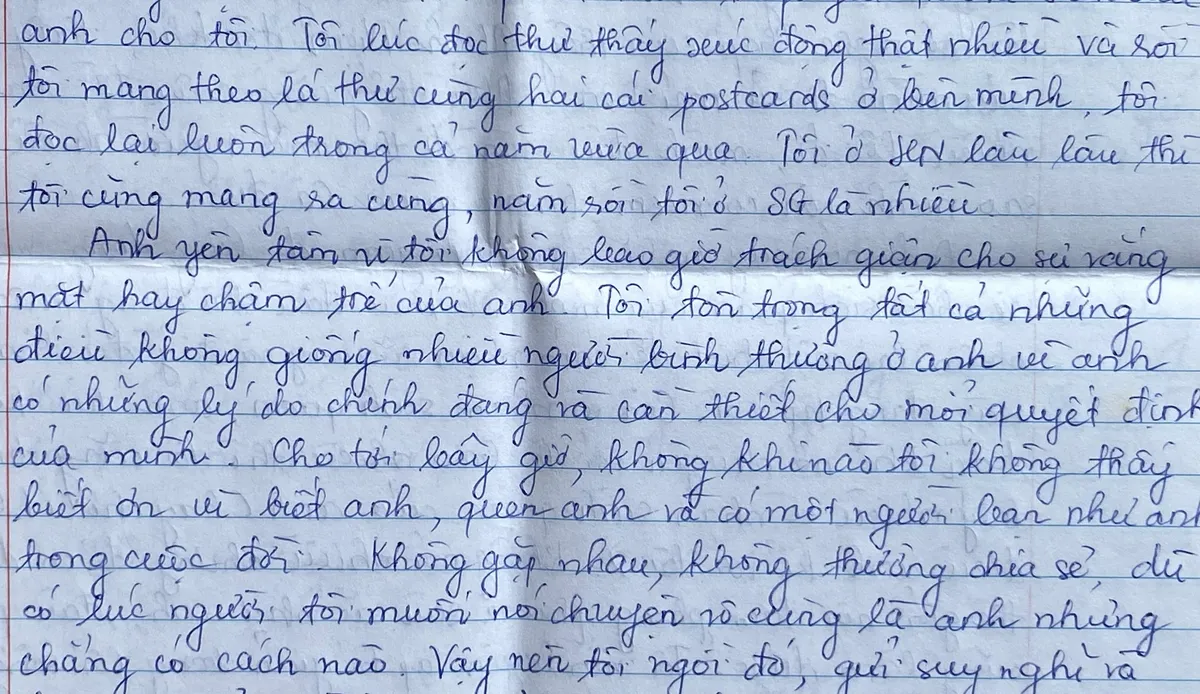 anh cho tôi. Tôi lúc đọc thư thấy xúc động thật nhiều và rồi
tôi mang theo lá thư cùng hai cái postcards ở bên mình, tôi
đọc lại luôn trong cả năm vừa qua. Tôi ở HN lâu lâu thì
tôi cũng mang ra cùng, năm rồi tôi ở SG là nhiều.
Anh yên tâm vì tôi không bao giờ trách giận cho sự vắng
mặt hay chậm trễ của anh. Tôi tôn trọng tất cả những
điều không giống nhiều người bình thường ở anh vì anh
có những lý do chính đáng và cần thiết cho mỗi quyết định
của mình. Cho tới bây giờ, không khi nào tôi không thấy
biết ơn vì biết anh, quen anh và có một người bạn như anh
trong cuộc đời. Không gặp nhau, không thường chia sẻ, dù
có lúc người tôi muốn nói chuyện vô cùng là anh nhưng
chẳng có cách nào. Vậy nên tôi ngồi đó, gửi suy nghĩ và